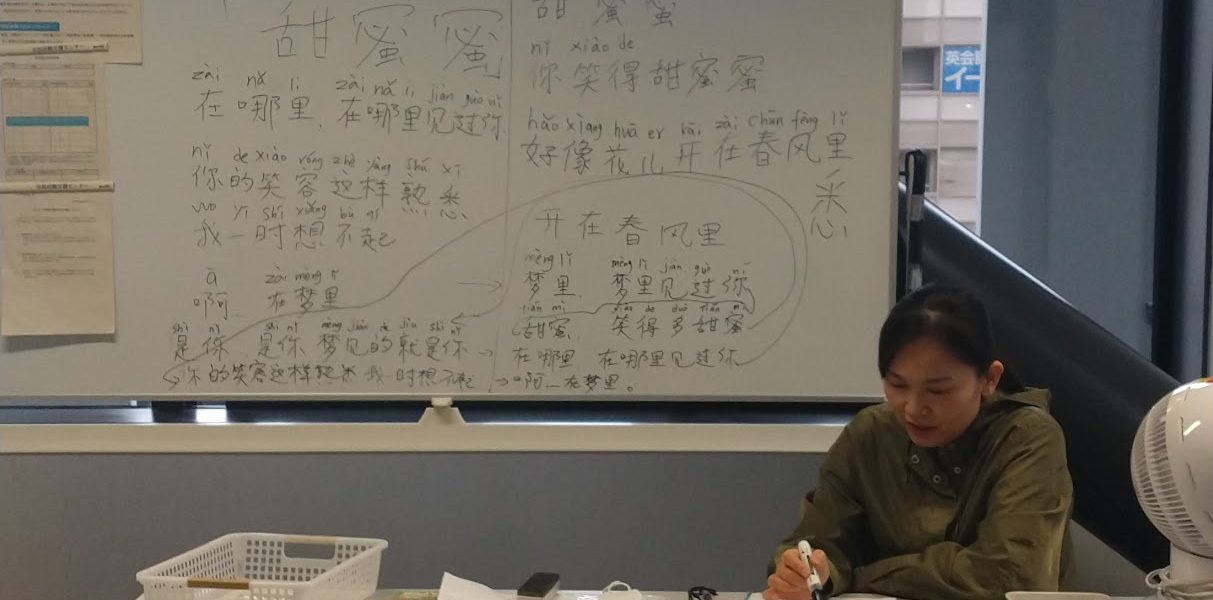 甜蜜蜜
zài nǎ li zài nǎ li jiàn guò nǐ
在哪里, 在哪里见过你
nǐ de xiào róng zhè yàng shú xī
你的笑容这样熟悉
wo yì shí xiǎng bù qǐ
我一时想不起
ā zài mèng lǐ
啊 在梦里
shì nǐ shì nǐ mèng jiàn de jiù shì nǐ
是你 是你 梦见的就是你
你的笑容这样熟悉 我一时想不起
甜蜜蜜
nǐ xiào de
你笑得甜蜜蜜
hǎo xiàng huā er kāi zài chūn fēng lǐ
好像花儿开在春风里
悉
开在春风里
mèng lǐ mèng lǐ jiàn guò nǐ
梦里 梦里见过你
tián mì xiào de duō tián mì
甜蜜 笑得多甜蜜
在哪里 在哪里见过你
啊—在梦里。
英会話
イー